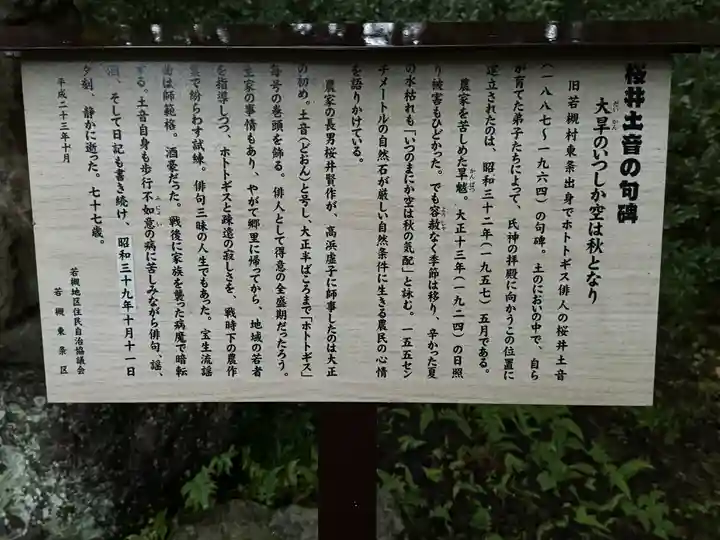 桜井土音の句碑
大旱のいつしか空は秋となり
だい かん
旧若槻村東条出身でホトトギス俳人の桜井土音
(一八八七〜一九六四)の句碑。土のにおいの中で、自ら
が育てた弟子たちによって、氏神の拝殿に向かうこの位置に
建立されたのは、昭和三十二年(一九五七)五月である。
農家を苦しめた旱魃。大正十三年(一九二四)の日照
かんばつ
り被害もひどかった。でも容赦なく季節は移り、辛かった夏
ようしゃ
の水枯れも「いつのまにか空は秋の気配」と詠む。一五五セン
チメートルの自然石が厳しい自然条件に生きる農民の心情
を語りかけている。
農家の長男桜井賢作が、高浜虚子に師事したのは大正
の初め。土音(どおん)と号し、大正半ばころまで「ホトトギス」
毎号の巻頭を飾る。俳人として得意の全盛期だったろう。
生家の事情もあり、やがて郷里に帰ってから、地域の若者
を指導しつつ、ホトトギスと疎遠の寂しさを、戦時下の農作
業で紛らわす試練。俳句三昧の人生でもあった。宝生流謡
曲は師範格。酒豪だった。戦後に家族を襲った病魔で暗転
する。土音自身も歩行不如意の病に苦しみながら俳句、謡、
ふにょい
酒、そして日記も書き続け、昭和三十九年十月十一日
夕刻、静かに逝った。七十七歳。
平成二十三年十月
若槻地区住民自治協議会
若槻東条区